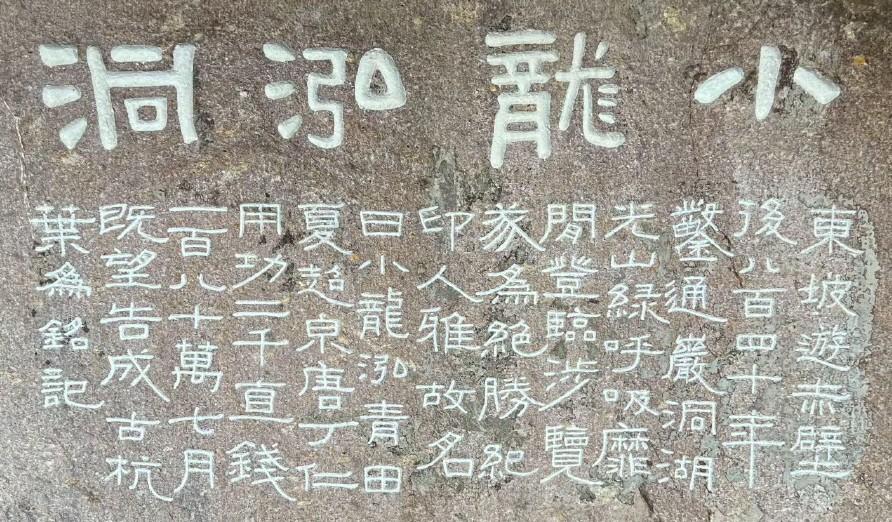 小龍泓洞
東坡遊赤壁
後八百四十年
鑿通巖洞湖
光山緑呼吸靡
閒登臨涉覽
遂為絕勝紀
印人雅故名
曰小龍泓青田
夏超泉唐丁仁
用功二千直錢
一百八十萬七月
既望告成古杭
葉為銘記